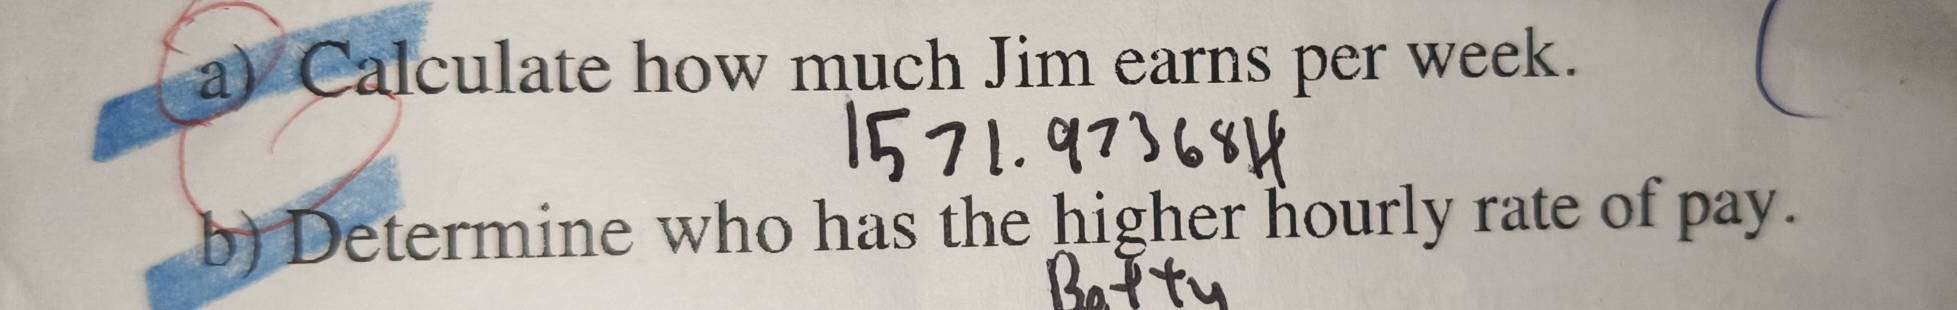 a) Calculate how much Jim earns per week.
1571.973684
b) Determine who has the higher hourly rate of pay.